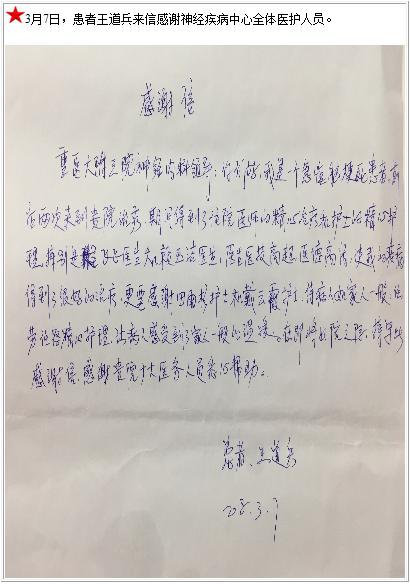 ★3月7日，患者王道兵来信感谢神经疾病中心全体医护人员。
感谢信
重医大附三院神经内科领导：你们好，我是一个急症脑梗死患者，前
后两次来到贵院治疗，期间得到了住院医师的精心治疗和护士的精心护
理，特别是 医生 医生，医生医技高超，医德高尚，使我的疾病
得到了很好的治疗，更要感谢 护士和 护士，待病人如家人一般，
护理，让病人感受到了家人一般的温暖。在即将出院之际，特写此
感谢信，感谢贵院广大医务人员悉心帮助。
患者：王道兵
3.7